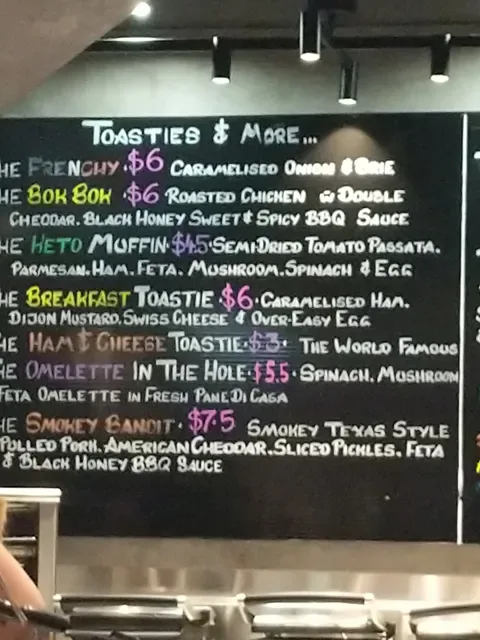 TOASTIES & MORE...
HE FRENCHY · $6 CARAMELISED ONION & BRIE
HE BOK BOK · $6 ROASTED CHICKEN w DOUBLE
CHEDDAR. BLACK HONEY SWEET & SPICY BBQ SAUCE
HE HETO MUFFIN · $4.5 · SEMI-DRIED TOMATO PASSATA.
PARMESAN. HAM. FETA. MUSHROOM. SPINACH & EGG
HE BREAKFAST TOASTIE · $6 · CARAMELISED HAM.
DIJON MUSTARD. SWISS CHEESE & OVER-EASY EGG
HE HAM & CHEESE TOASTIE · $3 · THE WORLD FAMOUS
HE OMELETTE IN THE HOLE · $5.5 · SPINACH. MUSHROOM
FETA OMELETTE IN FRESH PANE DI CASA
HE SMOKEY BANDIT · $7.5 SMOKEY TEXAS STYLE
PULLED PORK. AMERICAN CHEDDAR. SLICED PICKLES. FETA
& BLACK HONEY BBQ SAUCE